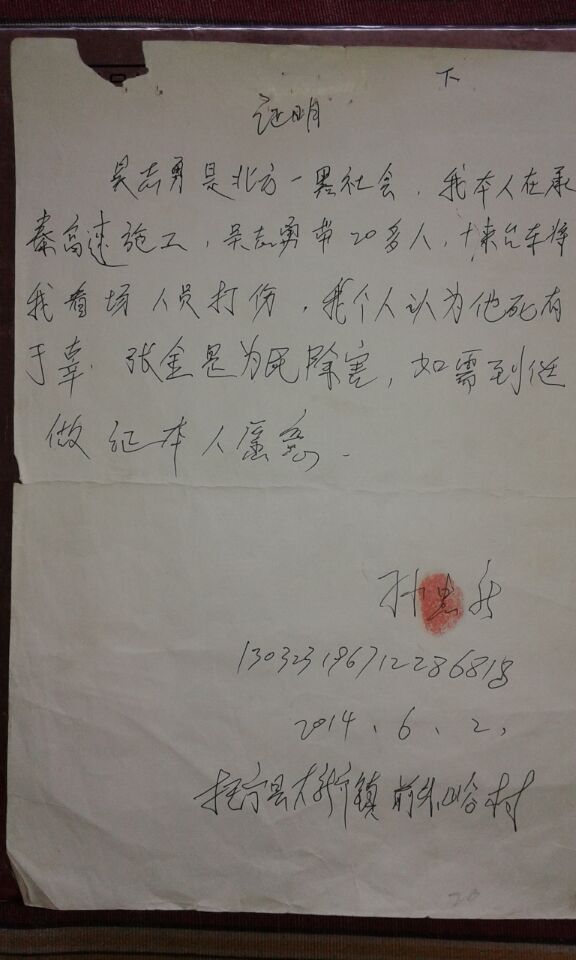 下
证明
吴志勇是北方一黑社会，我本人在承
秦高速施工，吴志勇带20多人，十来台车将
我看场人员打伤，我个人认为他死有
于辜．张金是为民除害，如需到庭
做证本人愿意．
孙
13032319671228681
2014．6．2．
抚宁县大新寨镇前 峪村
20